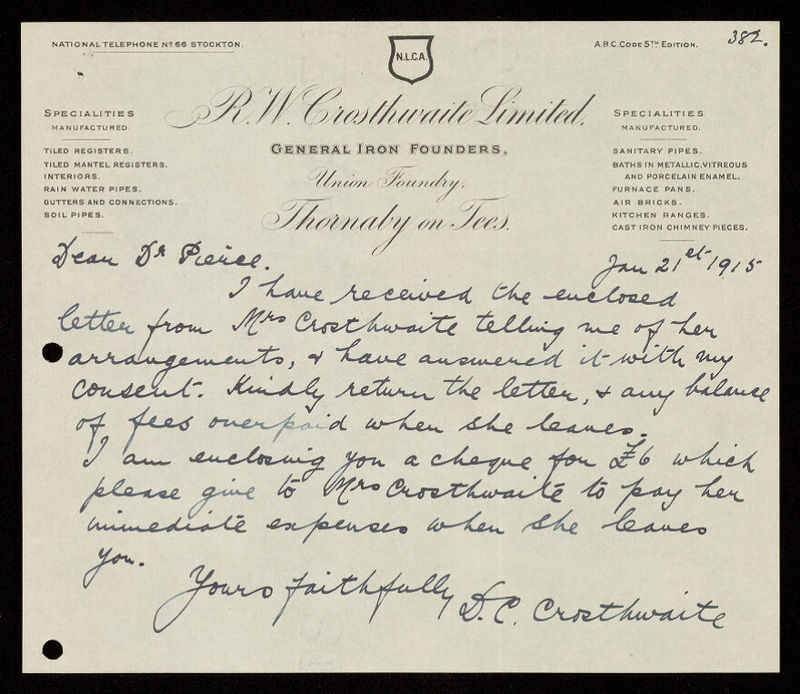 NATIONAL TELEPHONE No 66 STOCKTON.
N.L.C.A.
A.B.C. CODE 5TH EDITION.
382.
R.W. Crosthwaite Limited,
GENERAL IRON FOUNDERS,
Union Foundry,
Thornaby on Tees.
SPECIALITIES
MANUFACTURED.
TILED REGISTERS.
TILED MANTEL REGISTERS.
INTERIORS.
RAIN WATER PIPES.
GUTTERS AND CONNECTIONS.
SOIL PIPES.
SPECIALITIES
MANUFACTURED.
SANITARY PIPES.
BATHS IN METALLIC, VITREOUS
AND PORCELAIN ENAMEL.
FURNACE PANS.
AIR BRICKS.
KITCHEN RANGES.
CAST IRON CHIMNEY PIECES.
Jan 21st 1915
Dear Dr Pierce.
I have received the enclosed
letter from Mrs Crosthwaite telling me of her
arrangements, & have answered it with my
consent. Kindly return the letter, & any balance
of fees overpaid when she leaves.
I am enclosing you a cheque for £6 which
please give to Mrs Crosthwaite to pay her
immediate expenses when she leaves
you.
Yours faithfully
D. C. Crosthwaite